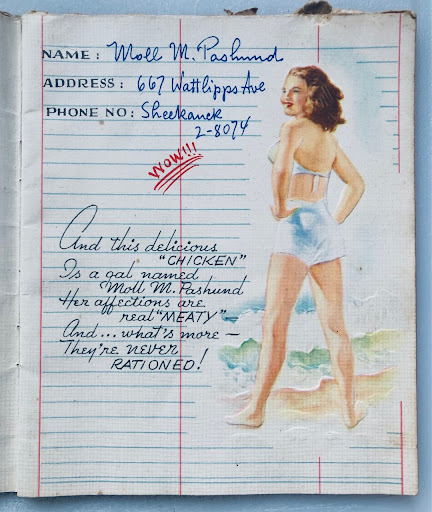 NAME: Moll M. Pashund
ADDRESS: 667 Wattlipps Ave
PHONE NO: Sheekanek
2-8074
WOW!!!
And this delicious
"CHICKEN"
Is a gal named
Moll M. Pashund
Her affections are
real "MEATY"
And... what's more —
They're NEVER
RATIONED!